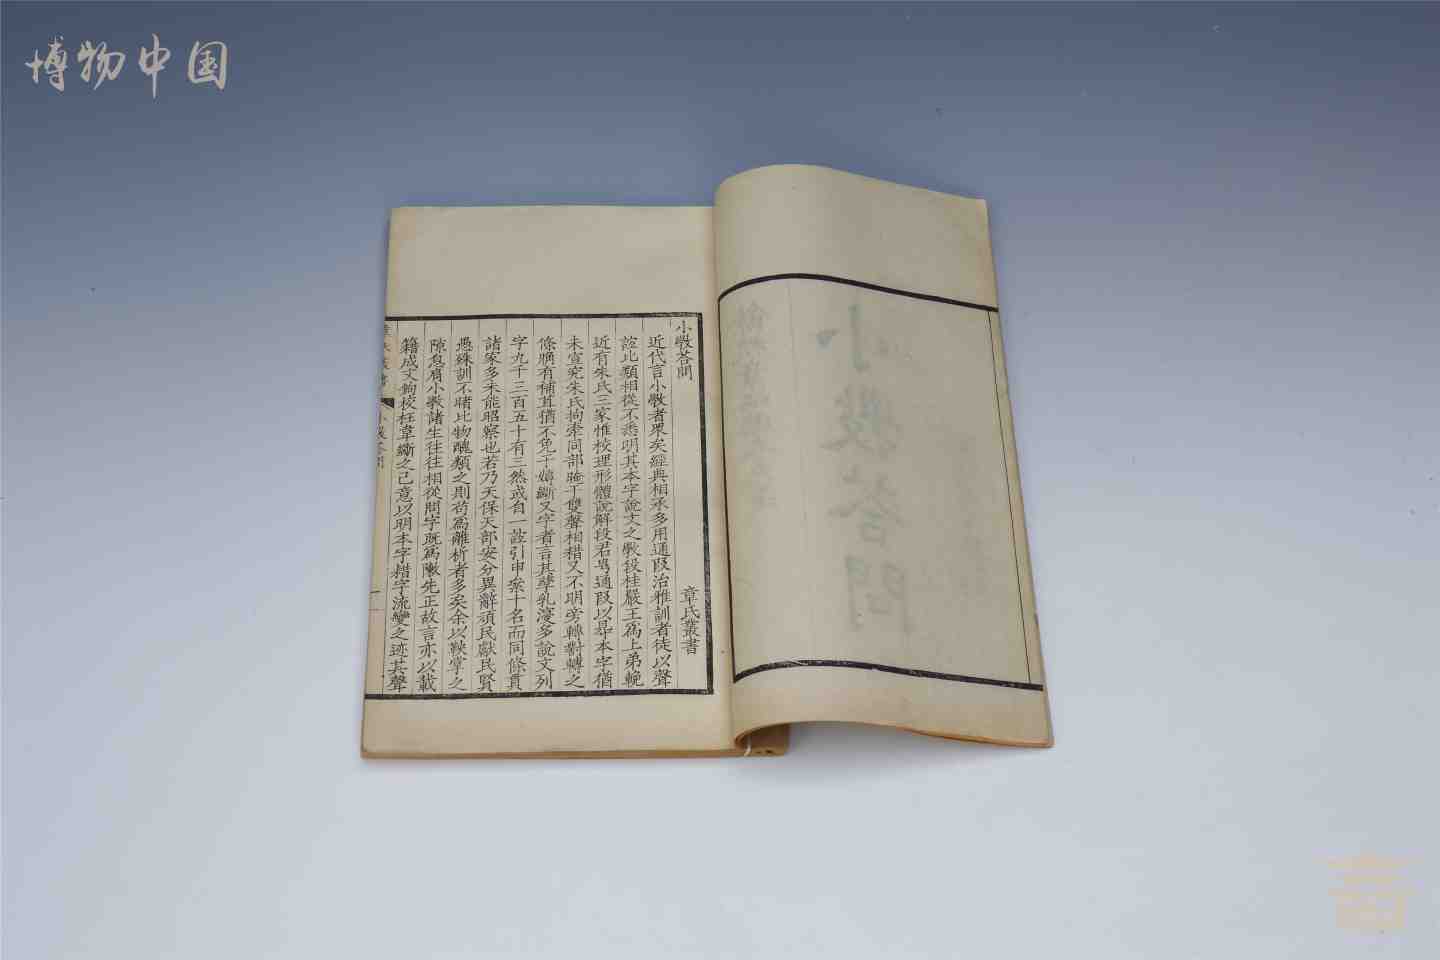 博物中国
小斆荅問
章氏叢書
近代言小斆者眾矣經典相承多用通叚治雅訓者徒以聲
誼比類相從不悉明其本字說文之斆段桂嚴王爲上弟輓
近有朱氏三家惟校理形體說解段君岢通叚以㝵本字猶
未宣究朱氏拘牽同部晻于雙聲相耤又不明旁轉對轉之
條牘有補苴猶不免于專斷又字者言其孳乳寖多說文列
字九千三百五十有三然或自一誼引申衺十名而同條貫
諸家多未能昭察也若乃天保天部安分異辭頑民獻民賢
愚殊訓不睹比物醜類之則苟爲離析者多矣余以鞅掌之
隙息肩小斆諸生往往相從問字旣爲敶先正故言亦以載
籍成文鉤校枉韋斷之己意以明本字耤字流變之迹其聲
小斆荅問
小斆荅問